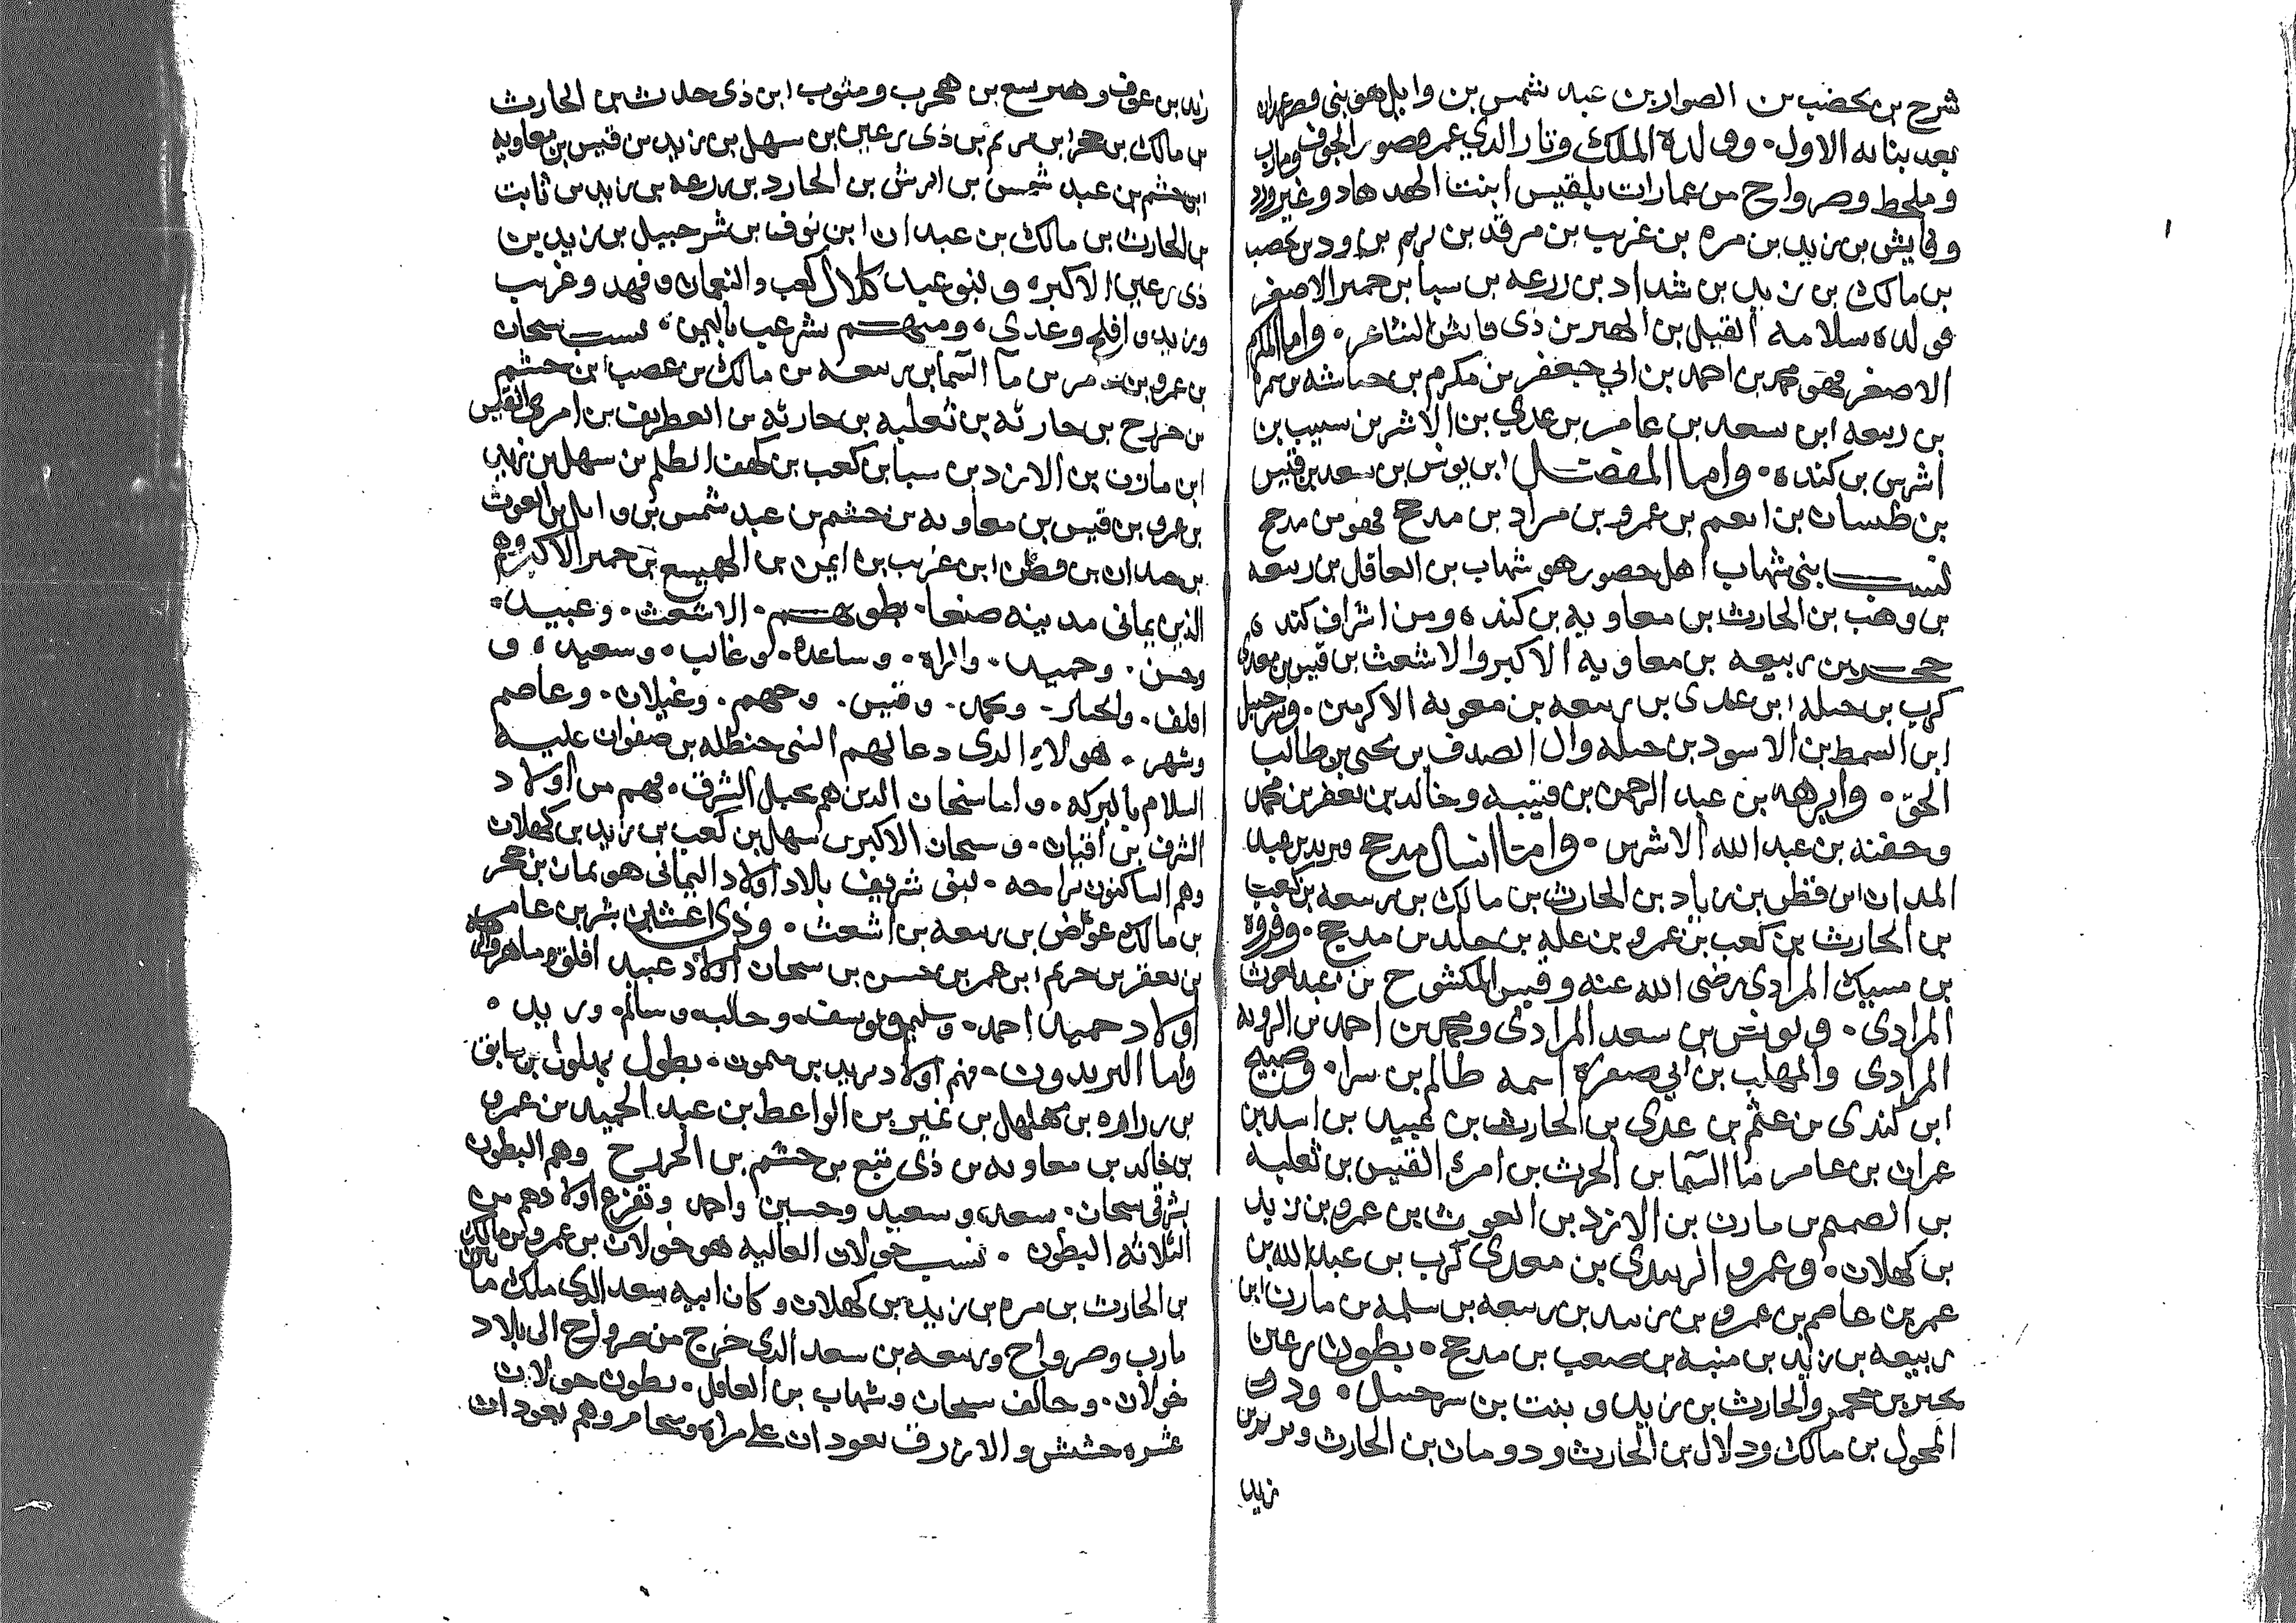 شرح بن يحضب بن الصوار بن عبد شمس بن وايل فهو بنى قصر
بعد بنايه الاول. وولده الملك وتار الذي عمر قصور الجوف ومارب
وملحط وصرواح من عمارات بلقيس ابنت الهدهاد وغير
وفايش بن زيد بن مره بن غريب بن مرثد بن يريم بن يحصب
بن مالك بن زيد بن شداد بن زرعه بن سبا بن حمير الاصغر
فولده سلامه القيل بن بن ذى فايش الشاعر. واما
الاصغر فهو محمد بن احمد بن ابي جعفر بن مكرم بن
بن ربيعه ابن سعد بن عامر بن عدي بن الاشر بن سبيب بن
اشرس بن كنده. واما المفضل ابن يونس بن سعد بن قيس
بن طسان بن انعم بن عمرو بن مراد بن مدحج فهو من مدحج
نسب بنى شهاب اهل حصور هو شهاب بن العاقل بن ربيعه
بن وهب بن الحارث بن معاويه بن كنده ومن اشراف كنده
حجر بن ربيعه بن معاويه الاكبر والاشعث بن قيس بن معدى
كرب بن جبله ابن عدى بن ربيعه بن معويه الاكرمين. وشرحبيل
ابن السمط بن الاسود بن جبله وال الصدف بن يحى بن طالب
الحق. وابرهه بن عبد الرحمن بن قتيبه وخالد بن يعفر بن محمد
وحفنه بن عبد الله الاشرس. وامتا انسال مدحج ويزيد بن عبد
المدان ابن قطن بن زياد بن الحارث بن مالك بن ربيعه بن كعب
بن الحارث بن كعب بن عمرو بن عله بن جلد بن مدحج. وفروه
بن مسيك المرادى رضى الله عنه وقيس المكشوح بن عبد يغوث
المرادى. ويونس بن سعد المرادى ومحمد بن احمد بن الرويه
المرادى والمهلب بن ابي صفره اسمه ظالم بن سرا. وصبيح
ابن كندى بن عثم بن عدى بن الحارث بن عبيد بن اسد بن
عمران بن عامر ما السما بن الحرث بن امرئ القيس بن ثعلبه
بن الصمم بن مازن بن الازد بن الغوث بن عمرو بن زيد
بن كهلان. وعمرو الزبيدى بن معدى كرب بن عبد الله بن
عمر بن عاصم بن عمرو بن زبيد بن ربيعه بن سلمه بن مازن ابن
ربيعه بن زيد بن منبه بن صعب بن مدحج. بطون رعين
بن حجر والحارث بن زيد و بنت بن شرحبيل.
المحول بن مالك ودلال بن الحارث ودومان بن الحارث
زيد
زيد بن عوف وهميسع بن هجرب ومثوب ابن ذى حدث بن الحارث
بن مالك بن حجر ابن يريم بن ذى رعين بن سهل بن زيد بن قيس بن معاويه
ابن حشم بن عبد شمس بن بن الحارد بن زرعه بن زيد بن ثابت
بن الحارث بن مالك بن عبدان ابن نوف بن شرحبيل بن زيد بن
ذى رعين الاكبر. وبنو عبد كلال كعب والنعمان وفهد وغريب
وزيد وافلح وعدي. ومنهم شرعب باليمن. نسب سحان
بن عمرو بن ما السما بن ربيعه بن مالك بن عصب ابن حشم
بن خزرج بن حارثه بن ثعلبه بن حارثه بن الغطريف بن امرئ القيس
ابن مازن بن الازد بن سبا بن كعب بن كهف الظلم بن سهل بن زيد
بن عمرو بن قيس بن معاويه بن حشم بن عبد شمس بن وايل بن الغوث
بن حمدان بن قطن ابن غريب بن ايمن بن الهميسع بن حمير الاكبر وهم
الذين يمانى مدينه صنعا. بطونهم. الاشعث. وعبيد.
وحسن. وحميد. والمراه. وساعده. وغالب. وسعيد. و
افلف. ومحمد. وقيس. وجهم. وغيلان. وعاصم
وشهر. هولاء الدى دعا لهم النبى حنظله بن صفوان عليه
السلام بالبركه. واما سنحان الدين هم بحبل الشرق. فهم من اولاد
الشرف بن اقيان. وسحان الاكبر بن سهل بن كعب بن زيد بن كهلان
وهم الساكنون براحه. لبنى شريف بالاد اولاد اليمانى هو يمان بن حجر
بن مالك عواض بن ربيعه بن اشعث. وذى اعشاين بشر بن عامر
بن يعفر بن حريم ابن عمر بن حسن بن سحان اولاد عبيد افلق
اولاد حميد احمد. وسليم ويوسف. وحالب. وسالم. وزيد.
واما اليزيدون. فهم اولاد يزيد بن ميمون. بطول بهلول بن سابق
بن زراره بن مهلهل بن عنيز بن الواعظ بن عبد الحميد بن عمرو
بن خالد بن معاويه بن ذى تبع بن حشم بن الخزرج وهم البطون
بشرقى سحان. سعد. وسعيد وحسين واحمد وتفرع اولادهم من
الثلاثه البطون. نسب خولان العاليه هو خولان بن عمرو بن مالك
بن الحارث بن مره بن زيد بن كهلان وكان ابيه سعد الدي ملك ما
مارب وصرواح وربيعه بن سعد الدي خرج من صرواح الى بلاد
خولان. وحالف سحان وشهاب بن العاقل. بطون خولان
عشره حشيش والازرق يعودان على مراه وهم يعودان